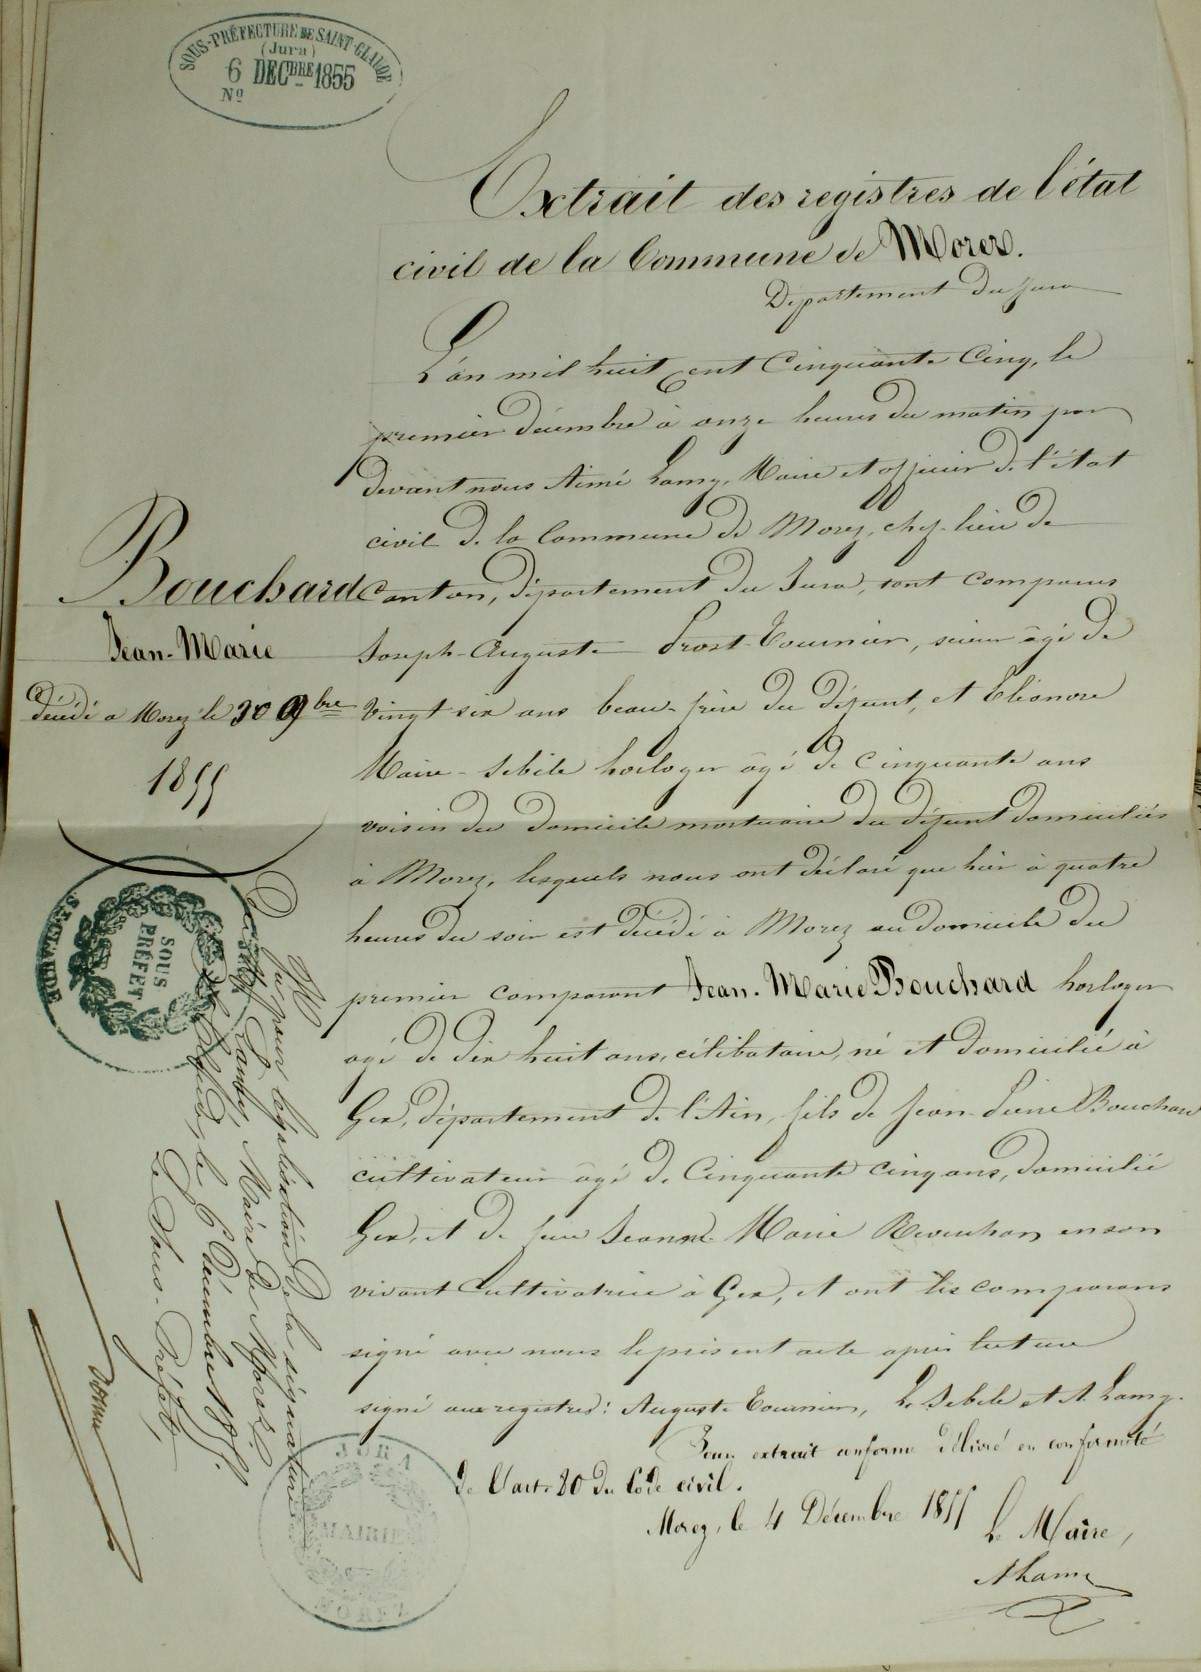 SOUS-PRÉFECTURE DE SAINT-CLAUDE
(Jura)
6 DECBRE 1855
No
Extrait des registres de l'état
civil de la Commune de Morez.
Département du Jura
L'an mil huit cent Cinquante Cinq, le
premier décembre à onze heures du matin par
devant nous Aimé Lamy, Maire et officier de l'état
civil de la Commune de Morez, chef-lieu de
Canton, département du Jura, sont comparus
Joseph-Auguste Prost-Tournier, scieur âgé de
vingt six ans beau-frère du défunt, et Eléonore
Maire-Sebile horloger âgé de Cinquante ans
voisin du domicile mortuaire du défunt domiciliés
à Morez, lesquels nous ont déclaré que hier à quatre
heures du soir est décédé à Morez au domicile du
premier comparant Jean-Marie Bouchard horloger
agé de dix huit ans, célibataire, né et domicilié à
Gex, département de l'Ain, fils de Jean-Pierre Bouchard
cultivateur âgé de Cinquante cinq ans, domicilié
Gex, et de feue Jeanne Marie en son
vivant Cultivatrice à Gex, et ont les comparans
signé avec nous le présent acte après lecture
signé aux registres: Auguste Tournier, Le Sebile et A. Lamy.
Pour extrait conforme délivré en conformité
de l'art. 80 du Code civil.
Morez, le 4 Décembre 1855
Le Maire,
ALamy
Bouchard
Jean-Marie
décédé a Morez le 30 9bre
1855
SOUS
PRÉFET
ST CLAUDE
Vu pour légalisation de la signature
de M. Lamy, Maire de Morez.
St Claude, le 6 Décembre 1855.
Le Sous-Préfet,
JURA
MAIRIE
MOREZ